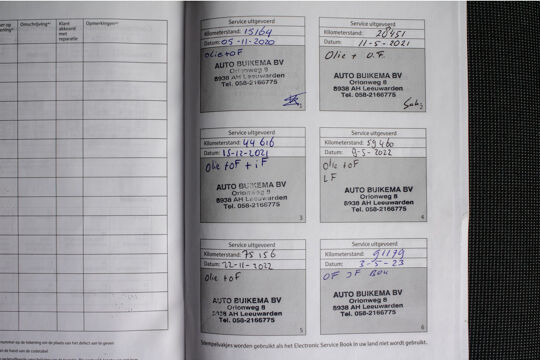 Omschrijving
Klant
akkoord
met
reparatie
Opmerkingen
Service uitgevoerd
Kilometerstand: 15164
Datum: 05-11-2020
olie+oF
AUTO BUIKEMA BV
Orionweg 8
8938 AH Leeuwarden
Tel. 058-2166775
1
Service uitgevoerd
Kilometerstand: 28451
Datum: 11-5-2021
Olie + O.F.
AUTO BUIKEMA BV
Orionweg 8
8938 AH Leeuwarden
Tel. 058-2166775
2
Service uitgevoerd
Kilometerstand: 44616
Datum: 15-12-2021
Olie +oF + iF
AUTO BUIKEMA BV
Orionweg 8
8938 AH Leeuwarden
Tel. 058-2166775
3
Service uitgevoerd
Kilometerstand: 59460
Datum: 9-5-2022
Olie +oF
LF
AUTO BUIKEMA BV
Orionweg 8
8938 AH Leeuwarden
Tel. 058-2166775
4
Service uitgevoerd
Kilometerstand: 75156
Datum: 22-11-2022
Olie +oF
AUTO BUIKEMA BV
Orionweg 8
8938 AH Leeuwarden
Tel. 058-2166775
5
Service uitgevoerd
Kilometerstand: 91179
Datum: 3-5-23
OF IF
AUTO BUIKEMA BV
Orionweg 8
8938 AH Leeuwarden
Tel. 058-2166775
6
Stempelvakjes worden gebruikt als het Electronic Service Book in uw land niet wordt gebruikt.